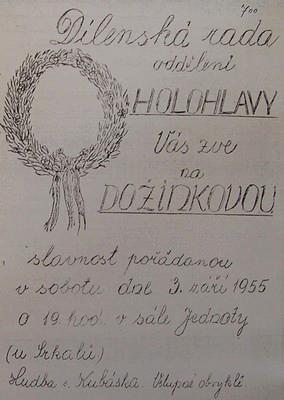 700
Dílenská rada
oddělení
HOLOHLAVY
Vás zve
na
DOŽÍNKOVOU
slavnost pořádanou
v sobotu dne 3. září 1955
o 19. hod. v sále Jednoty
(u Srkalů)
Hudba Kubáska. Vstupné obvyklé.